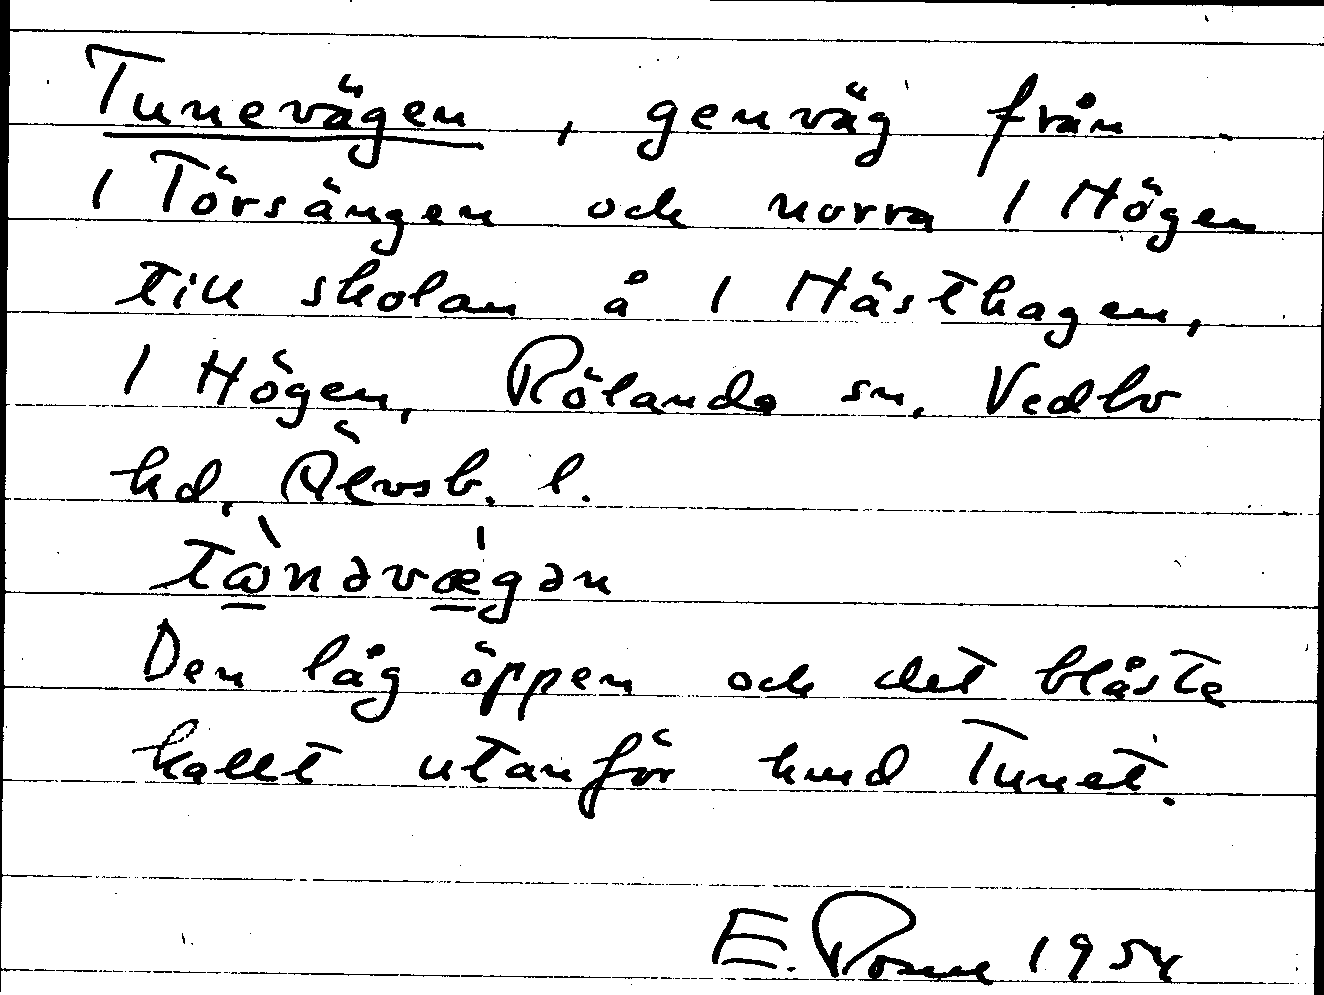 Tunevägen, genväg från
1 Törsängen och norra 1 Högen
till skolan å 1 Hästhagen,
1 Högen, Rölanda sn, Vedbo
hd, Älvsb. l.
Den låg öppen och det blåste
kallt utanför hmd Tunet.
E. Rosne 1954